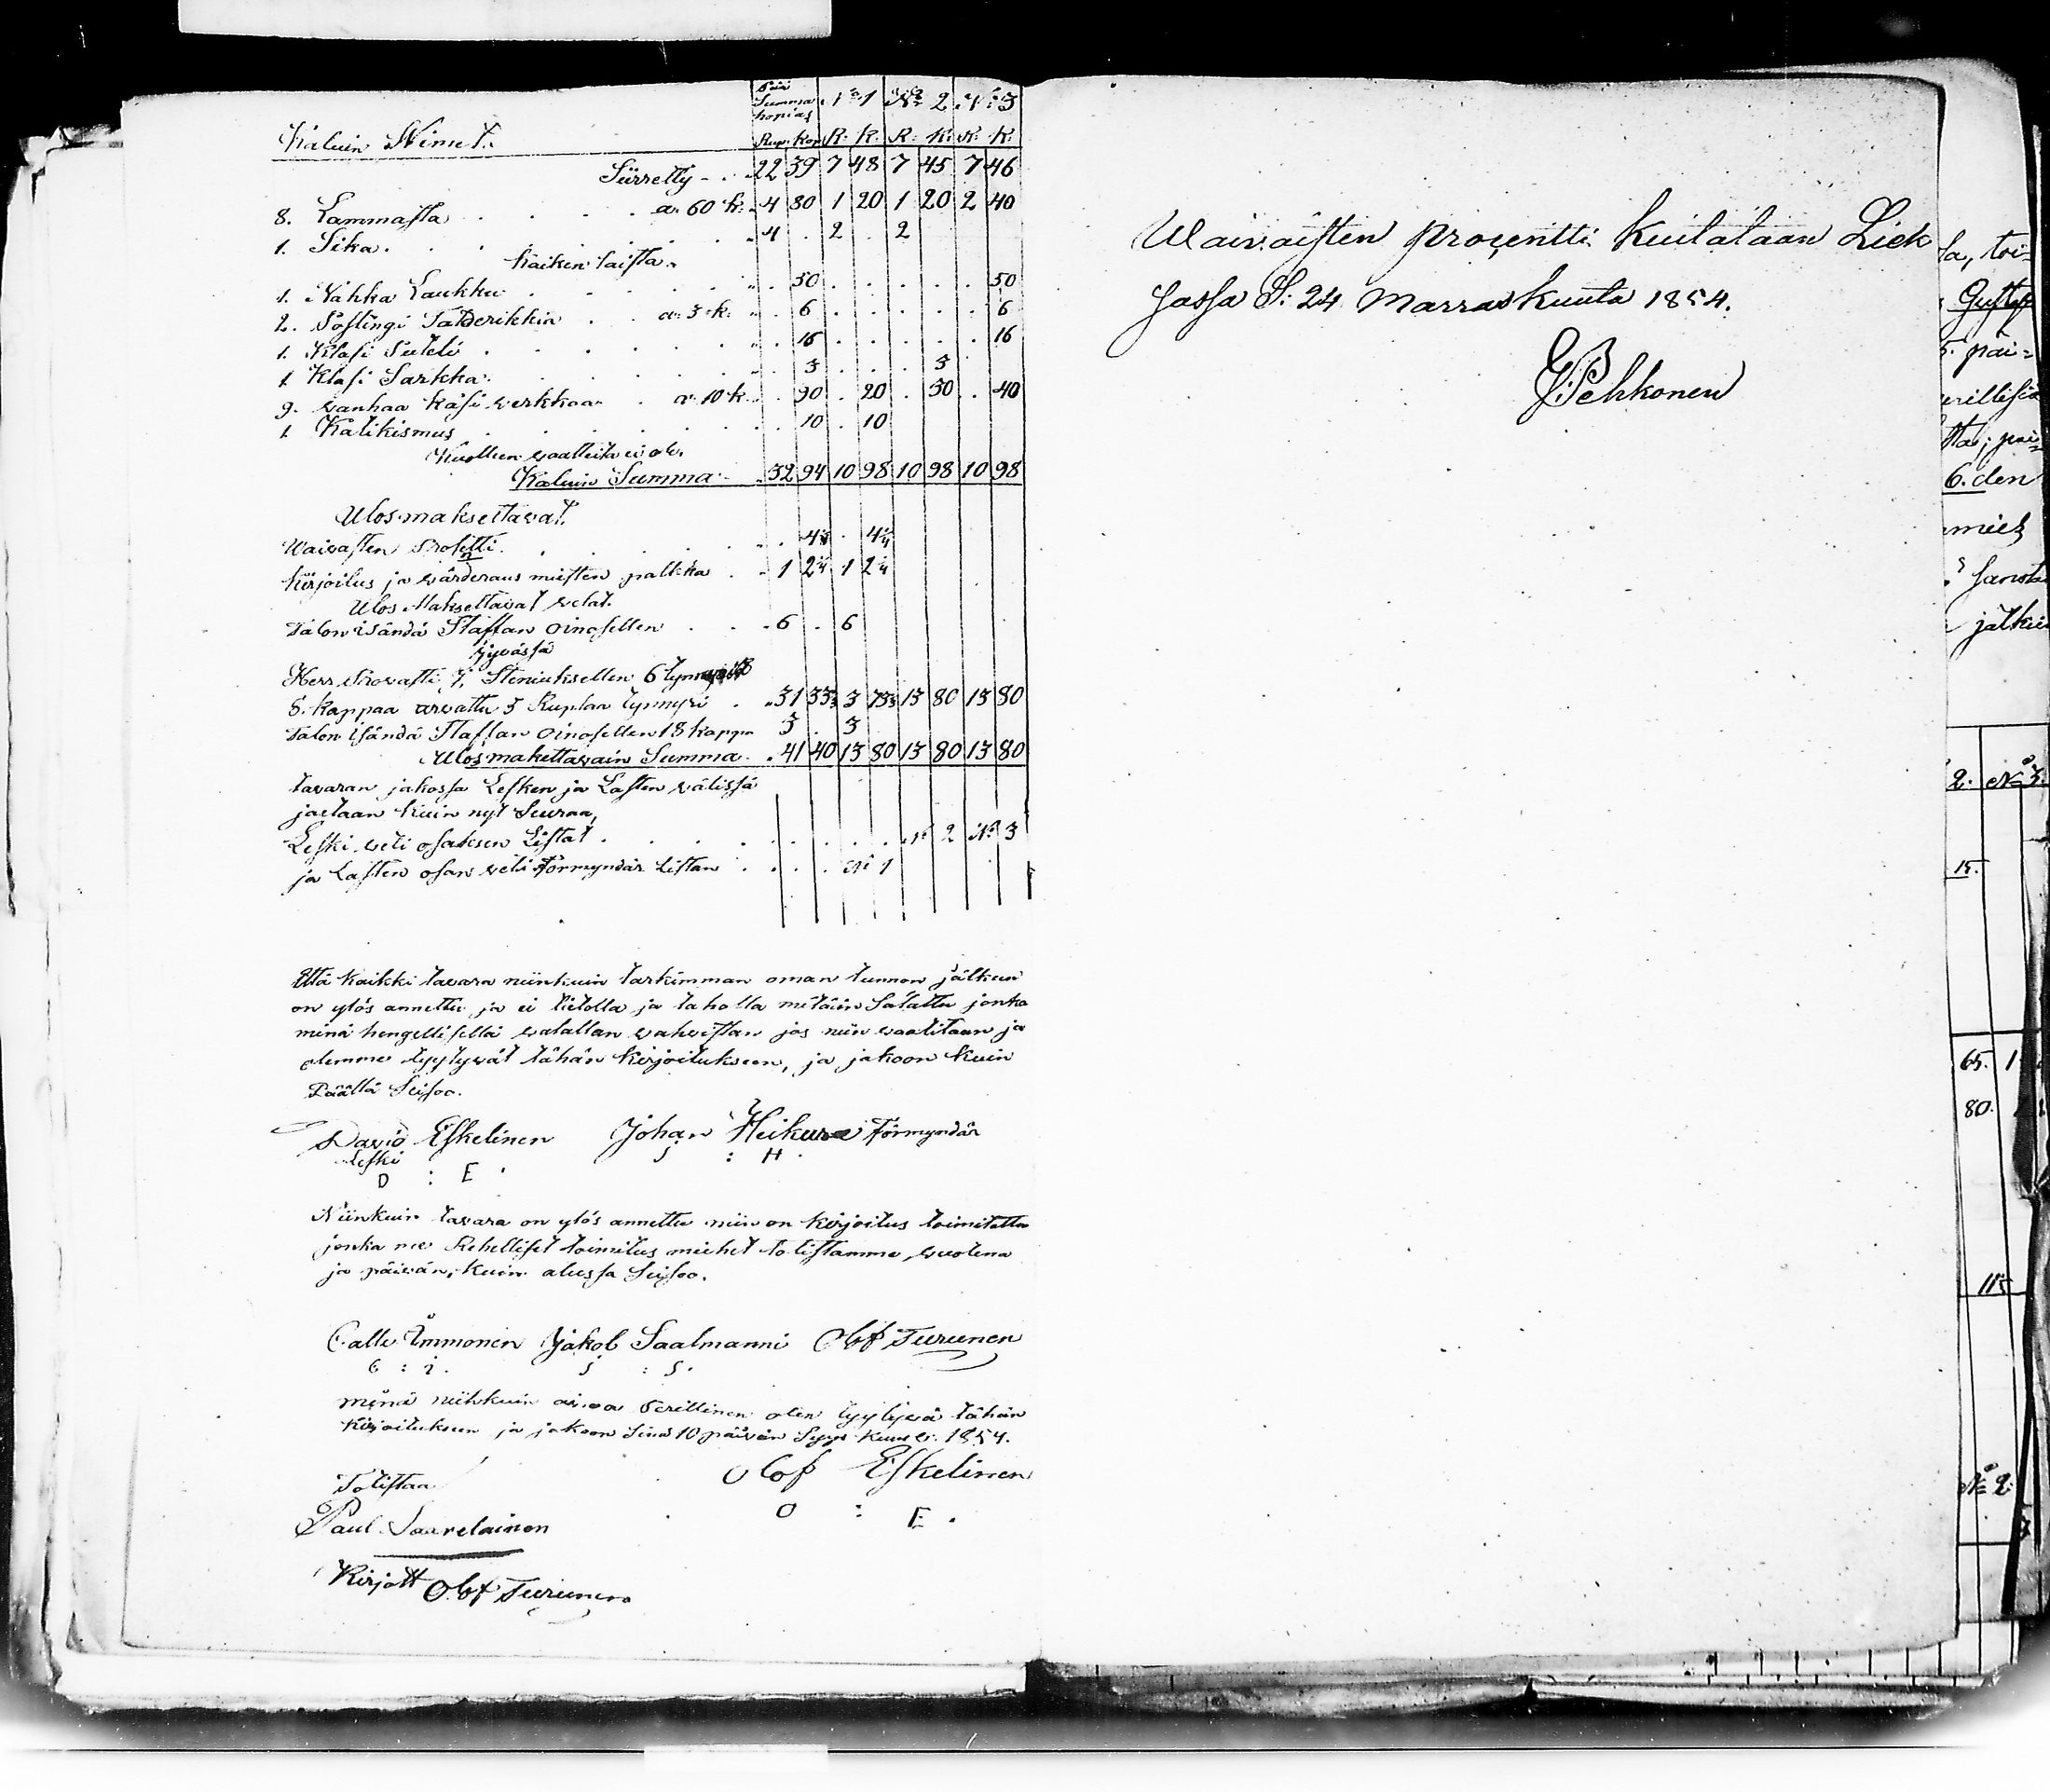 Pää
Summa N:o 1 N:o 2 N:o 3
hopias
Kaluin Nimet. Rup. Kop R. K. R. K. R. K.
Siirretty 22 39 7 48 7 45 7 46
8. Lammasta a. 60 k. 4 80 1 20 1 20 2 40
1. Sika 4 . 2 . 2
kaiken laista
1. Nahka Laukku 50 50
2. Poslingi Talderikkia a. 3 k. 6 6
1. Klasi Puteli 16 16
1. Klasi Sarkka 3 3
9. wanhaa käsi werkkoa a. 10 k. 90 20 30 40
1. Katikismus 10 10
Kuolleen waatteita ei ole.
Kaluin Summa 32 94 10 98 10 98 10 98
Ulosmaksettawat.
Waiwasten Prosentti 4¼ 4¼
Kirjoitus ja wärderaus miesten palkka 1 2¼ 1 2¼
Ulos Maksettawat welat.
Talon isändä Staffan Oinosellen 6 . 6
Jywässä
Herr Prowasti J. Steniuksellen 6 tynnyriä
8. kappaa arwattu 5 Ruplaa tynnyri 31 33⅓ 3 73⅓ 13 80 13 80
Talon Isändä Staffan Oinosellen 18 kappa 3 . 3
Ulosmakettawain Summa 41 40 13 80 13 80 13 80
tawaran jakossa Lesken ja Lasten wälissä
jaetaan kuin nyt Seuraa,
Leski weti osaksen Listat N:o 2 N:o 3
ja Lasten osan weti Förmyndär listan N:o 1
Että kaikki tawara niinkuin tarkimman oman tunnon jälkeen
on ylös annettu ja ei tietolla ja taholla mitäin Salattu jonka
minä hengellisellä walallan wahwistan jos niin waatitaan ja
olemme tyytywät tähän kirjoitukseen, ja jakoon kuin
Päällä Seisoo.
David Eskelinen Johan Heikura Förmyndär
Leski J : H
D : E
Niinkuin tawara on ylös annettu niin on kirjoitus toimitettu
jonka me Rehelliset toimitus miehet totistamme, wuotena
ja päiwän, kuin alussa Seisoo.
Calle Immonen Jakob Saalmanni Olof Turunen
C : I. J : S.
minä niihkuin aiwa Perillinen olen tyytywä tähän
Kirjoitukseen ja jakoon Sinä 10 päiwän Syys kuus w. 1854.
Totistaa Olof Eskelinen
Paul Saarelainen O : E.
Kirjott Olof Turunen
Waiwaisten procentti kuitataan Liek
sassa S: 24 Marraskuuta 1854.
Pehkonen
la, toi=
Gustaf
5. päi=
6. den
miehs
jälkee
2. No 3.
15.
65. 1
80.
115
No 2